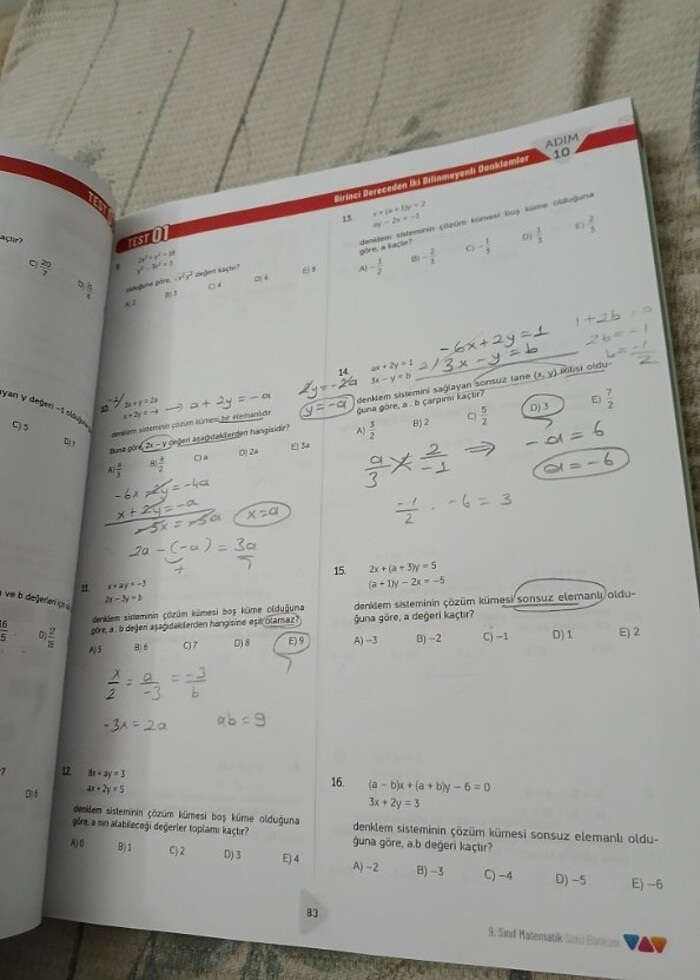 TEST 0
açtır?
C) 20/7
yan y değeri -1 olduğuna
C) 5
D) 7
ve b değerleri için
D) 17/16
D) 6
TEST 01
Birinci Dereceden İki Bilinmeyenli Denklemler
ADIM 10
olduğuna göre, -x²y² değeri kaçtır?
A) 2 B) 3 C) 4 D) 6 E) 8
10. 3x + y = 2a
x + 2y = -a
⇒ a + 2y = -a
2y = -2a
y = -a
denklem sisteminin çözüm kümesi bir elemanlıdır.
Buna göre, 2x - y değeri aşağıdakilerden hangisidir?
A) a/3 B) a/2 C) a D) 2a E) 3a
-6x - 2y = -4a
x + 2y = -a
-5x = -5a
x = a
2a - (-a) = 3a
+
11. x + ay = -3
2x - 3y = b
denklem sisteminin çözüm kümesi boş küme olduğuna
göre, a . b değeri aşağıdakilerden hangisine eşit olamaz?
A) 5 B) 6 C) 7 D) 8 E) 9
x/2 = a/-3 = -3/b
-3x = 2a
ab = 9
12. 8x + ay = 3
ax + 2y = 5
denklem sisteminin çözüm kümesi boş küme olduğuna
göre, a nın alabileceği değerler toplamı kaçtır?
A) 0 B) 1 C) 2 D) 3 E) 4
13. x + (a + 1)y = 2
ay - 2x = -1
denklem sisteminin çözüm kümesi boş küme olduğuna
göre, a kaçtır?
A) -3/2 B) -2/3 C) -1/3 D) 1/3 E) 2/3
14. ax + 2y = 1
3x - y = b
-6x + 2y = 1
2/ 3x - y = b
1 + 2b = 0
2b = -1
b = -1/2
denklem sistemini sağlayan sonsuz tane (x, y) ikilisi oldu-
ğuna göre, a . b çarpımı kaçtır?
A) 3/2 B) 2 C) 5/2 D) 3 E) 7/2
a/3 2/-1 ⇒ -a = 6
a = -6
-1/2 . -6 = 3
15. 2x + (a + 3)y = 5
(a + 1)y - 2x = -5
denklem sisteminin çözüm kümesi sonsuz elemanlı oldu-
ğuna göre, a değeri kaçtır?
A) -3 B) -2 C) -1 D) 1 E) 2
16. (a - b)x + (a + b)y - 6 = 0
3x + 2y = 3
denklem sisteminin çözüm kümesi sonsuz elemanlı oldu-
ğuna göre, a.b değeri kaçtır?
A) -2 B) -3 C) -4 D) -5 E) -6
83
9. Sınıf Matematik Soru Bankası